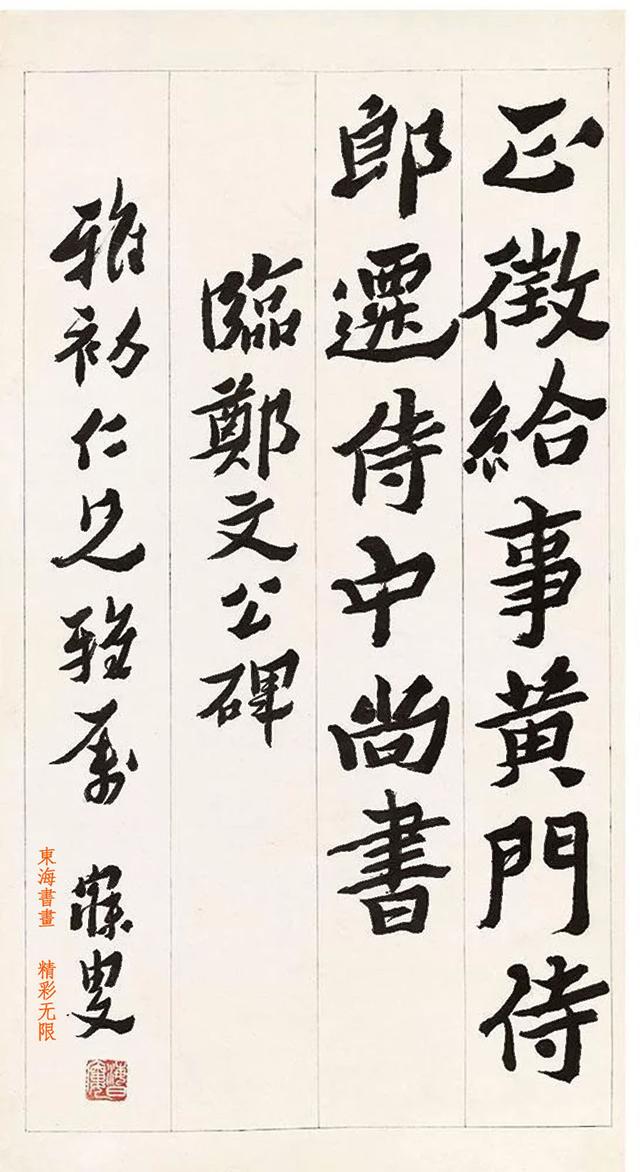 正徵給事黃門侍
郎遷侍中尚書
臨鄭文公碑
雅初仁兄雅屬
寐叟
東海書畫 精彩无限